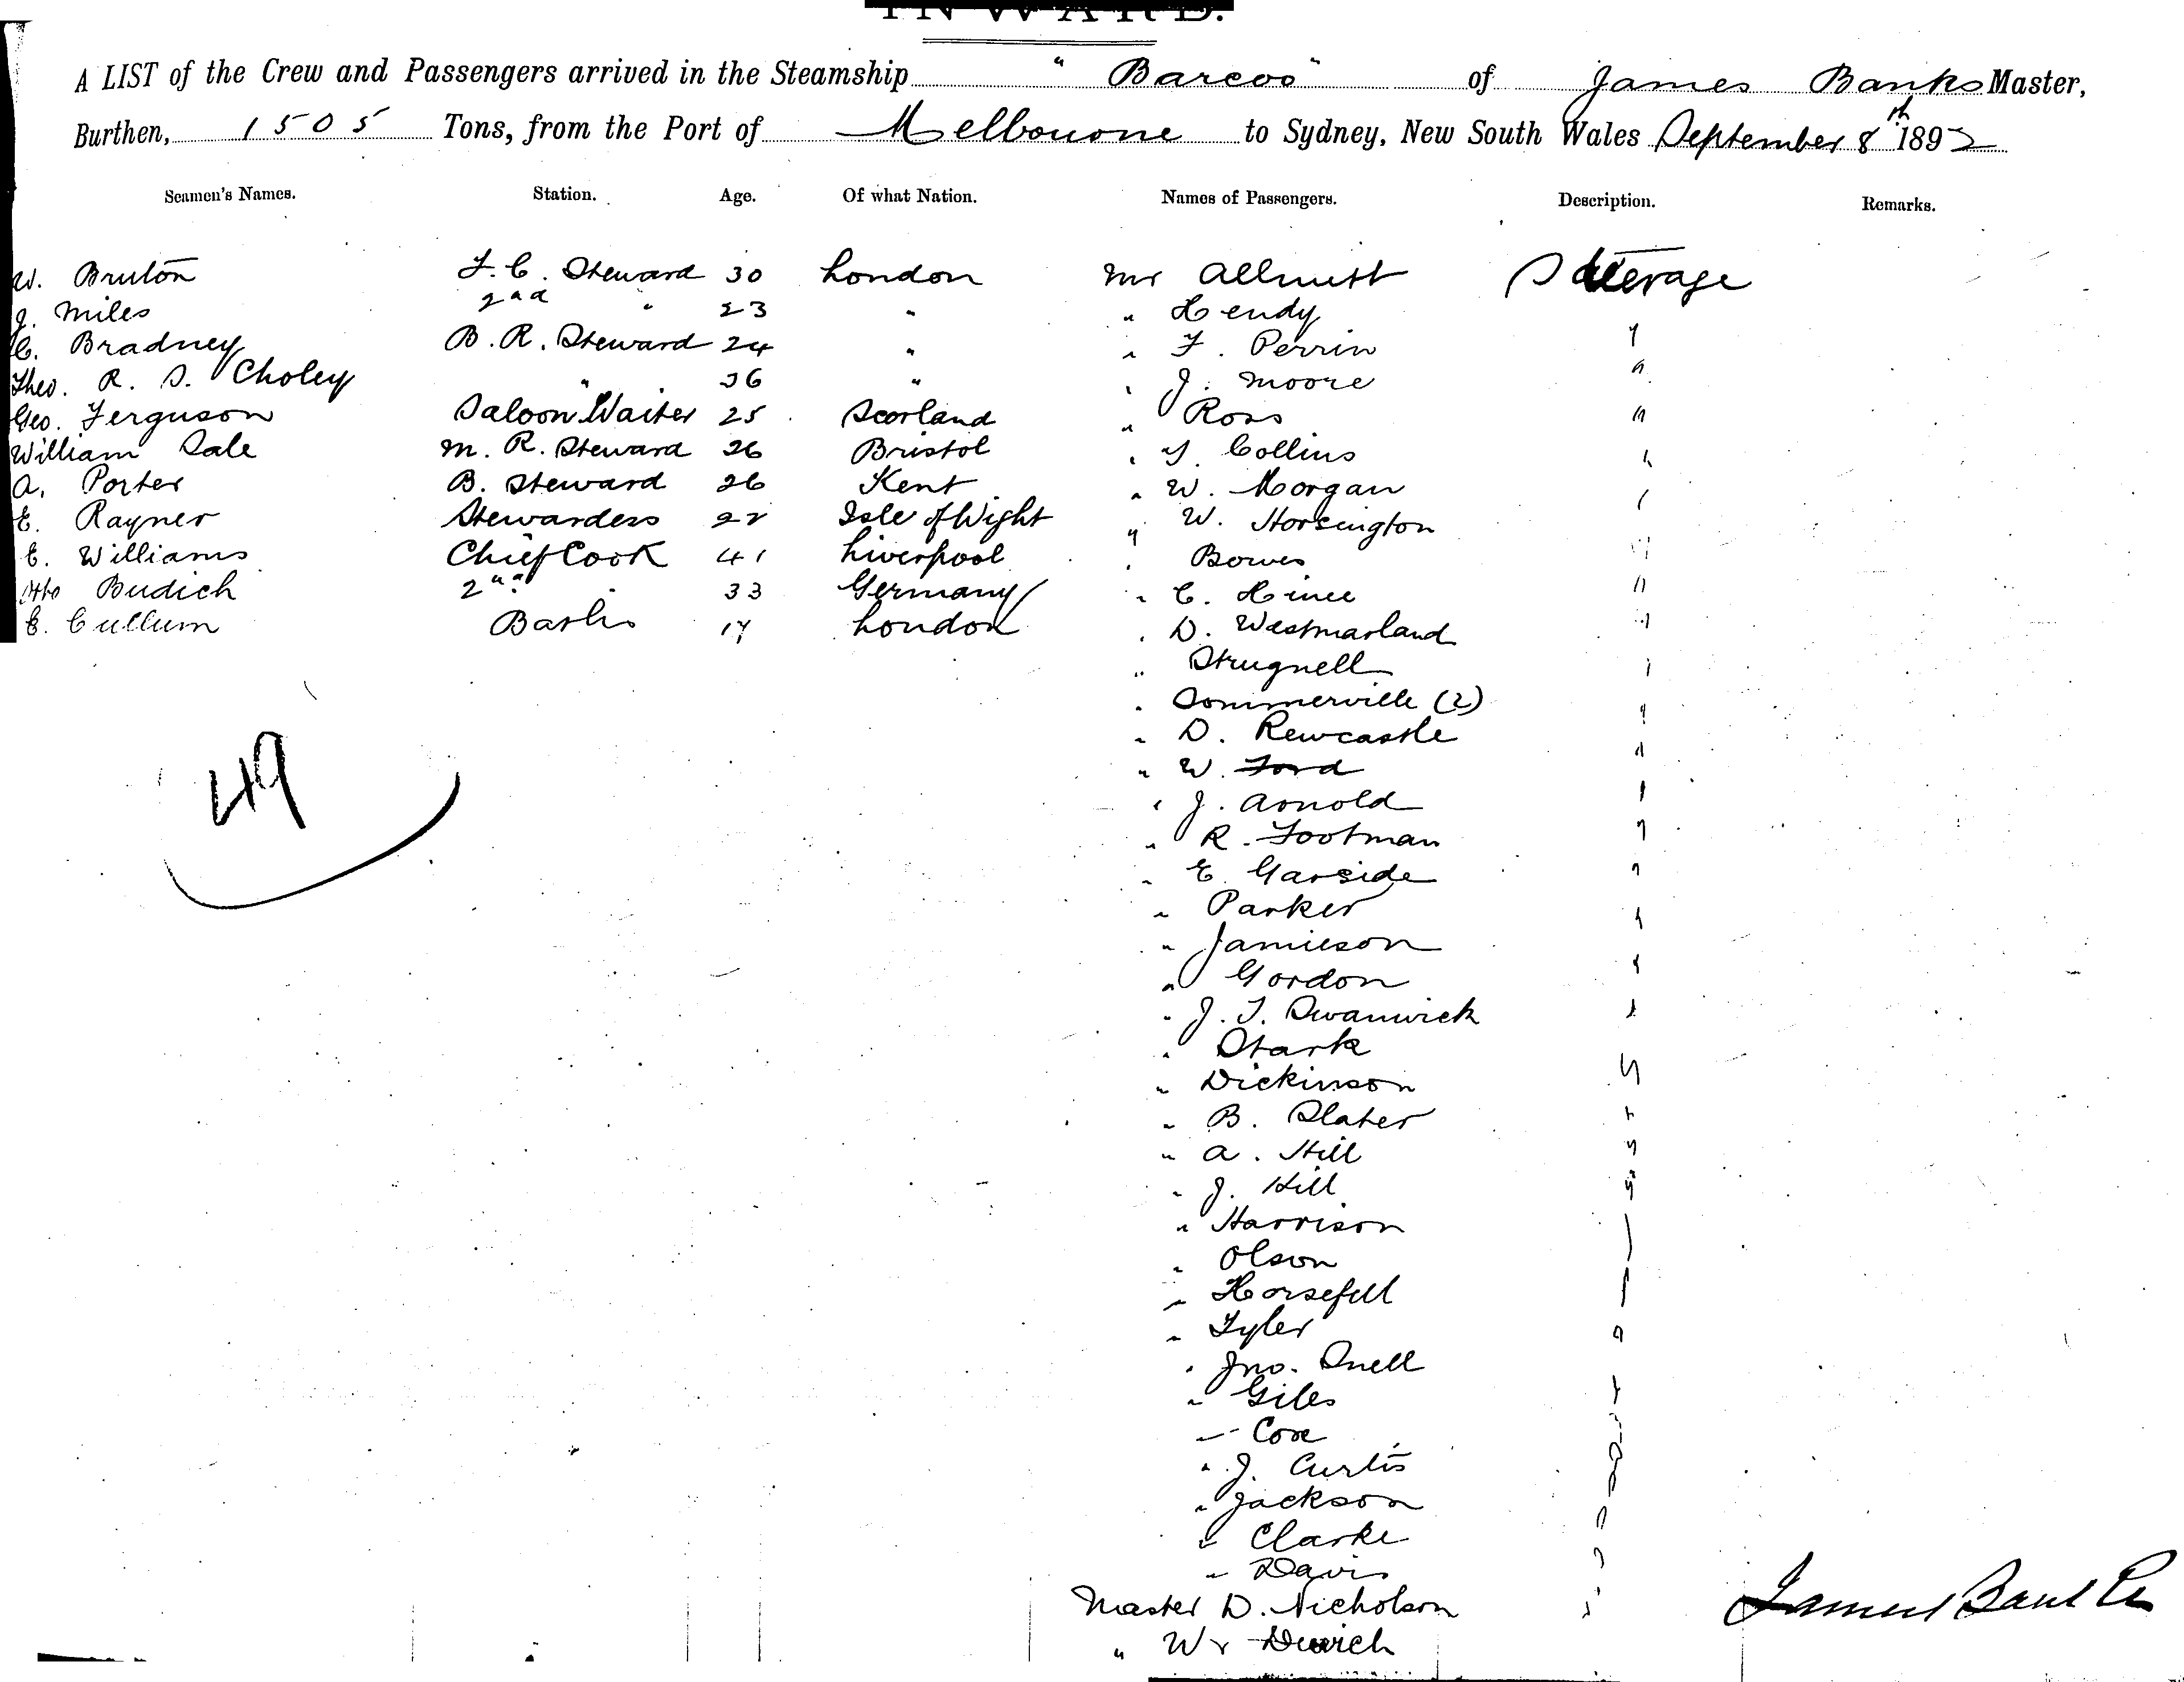 INWARD.
A LIST of the Crew and Passengers arrived in the Steamship "Barcoo" of James Banks Master,
Burthen, 1505 Tons, from the Port of Melbourne to Sydney, New South Wales September 8th 1892
Seamen's Names. Station. Age. Of what Nation. Names of Passengers. Description. Remarks.
W. Bruton F. C. Steward 30 London Mr Allnutt Steerage
J. Miles 2nd " 23 " " Hendy "
C. Bradney B. R. Steward 24 " " F. Perrin "
Theo. R. S. Choley " 36 " " J. Moore "
Geo. Ferguson Saloon Waiter 25 Scotland " Ross "
William Sale M. R. Steward 26 Bristol " Collins "
A. Porter B. Steward 26 Kent " W. Morgan "
E. Rayner Stewardess Isle of Wight " W. Horsington "
E. Williams Chief Cook 41 Liverpool " Bowes "
Otto Budich 2nd " 33 Germany " C. Hince "
E. Cullum 17 London " D. Westmarland "
" Strugnell "
" Sommerville (2) "
" D. Rewcastle "
" W. Ford "
" J. Arnold "
" R. Footman "
" E. Garside "
" Parker "
" Jamieson "
" Gordon "
" J. T. Swanwick "
" Stark "
" Dickinson "
" B. Slater "
" A. Hill "
" J. Hill "
" Harrison "
" Olson "
" Horsefell "
" Tyler "
" Jno. Snell "
" Giles "
" Cox "
" J. Curtis "
" Jackson "
" Clarke "
" Davis "
Master D. Nicholson "
" W
49
James Banks